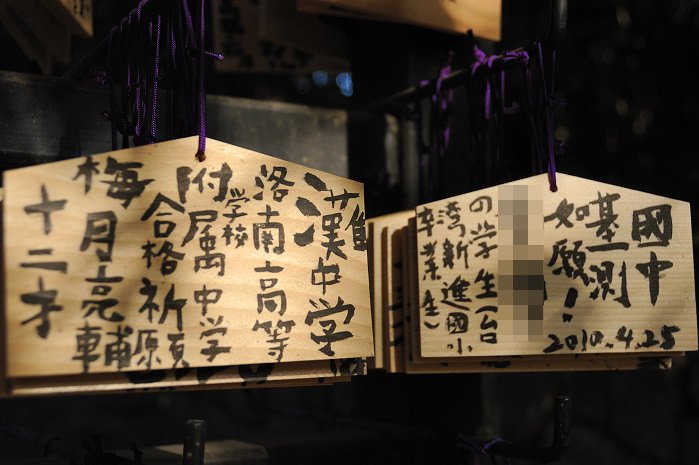 灘中学
洛南高等
学校
附属中学
合格祈願
梅月亮輔
十二才
國中
基測
如願！
2010.4.25
の学生(台
湾新進國小
卒業生)